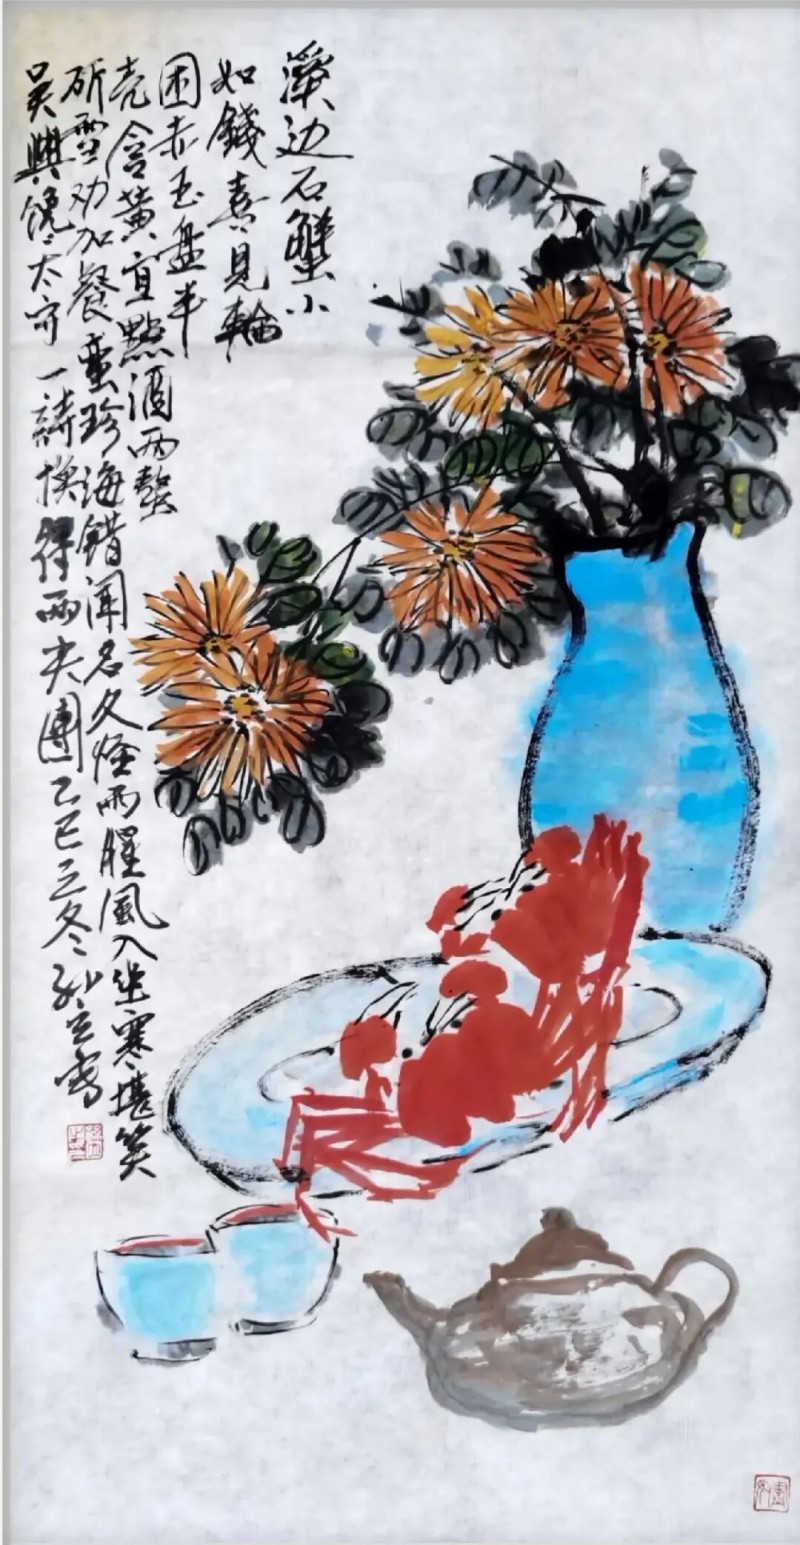 溪边石蟹小
如錢喜見輪
囷赤玉盘半
壳含黄宜點酒两螯
斫雪劝加餐蛮珍海错闻名久怪雨腥風入坐寒堪笑
吴興馋太守一詩换得两尖團乙巳立冬写